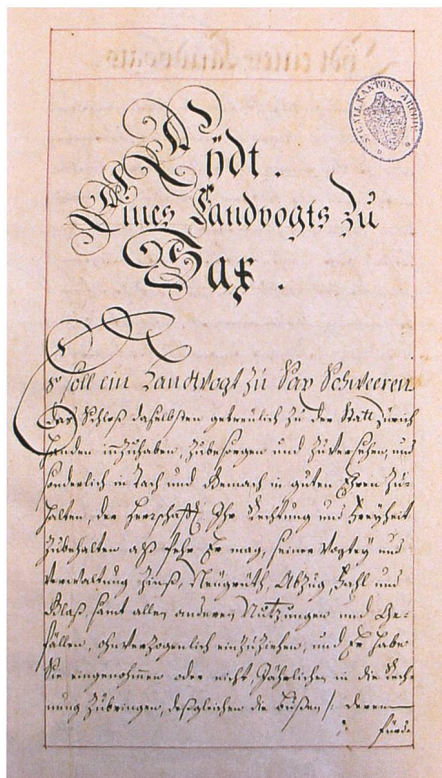 Eydt.
Eines Landvogts zu
Sax.
Es soll ein Landtvogt zu Sax Schweeren
das Schloß daselbsten getreulich zu der Statt Zürich
Handen inzuhaben, zubesorgen und zuversehen, und
sonderlich in Tach und Gemach in guten Ehren zu-
halten, der Herrschafft Ihr Rechtung und Freyheit
zubehalten alß fehr Er mag, seiner Vogtey und
verwaltung Zinß, Neügrüth, Abzug, Fähl und
Gläß, samt allen anderen Nutzungen und Ge-
fällen, ohnverzogenlich einzuziehen, und Er habe
Sie eingenohmen oder nicht, Jährlichen in die Rech-
nung zubringen, deßgleichen die Bußen /: deren
fürd-